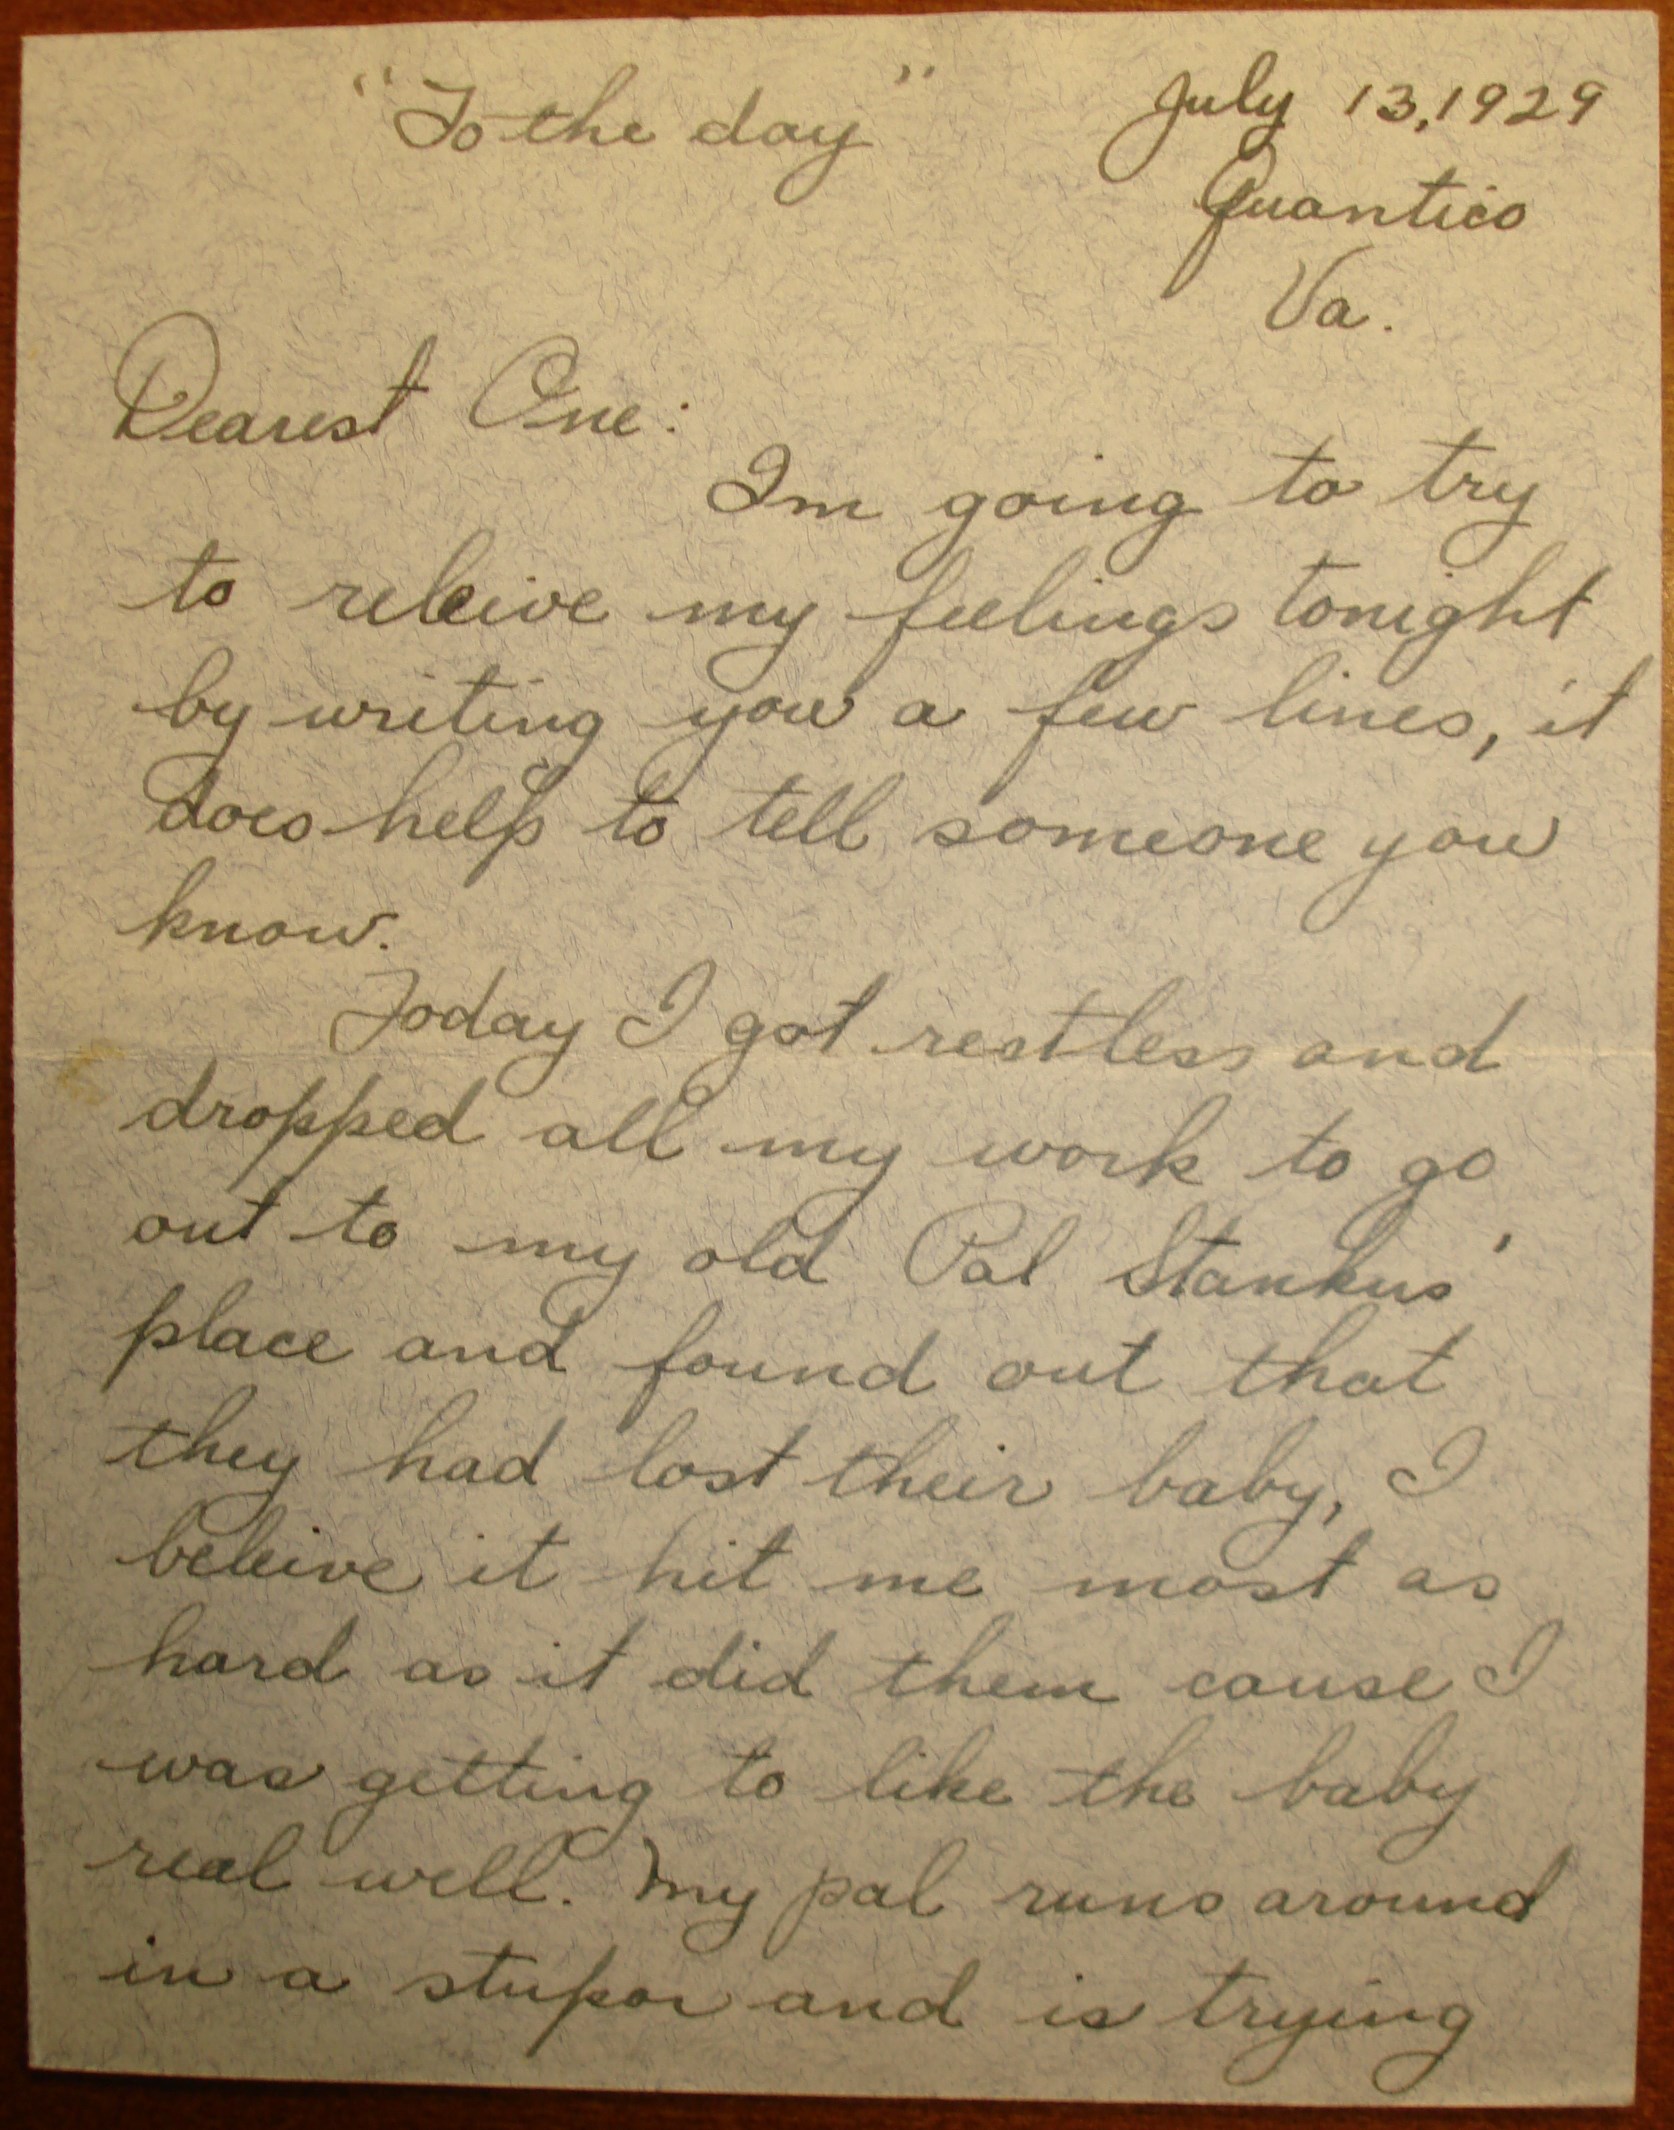 "To the day"
July 13, 1929
Quantico
Va.
Dearest One:
Im going to try
to releive my feelings tonight
by writing you a few lines, it
does help to tell someone you
know.
Today I got restless and
dropped all my work to go
out to my old Pal Stankus'
place and found out that
they had lost their baby, I
beleive it hit me most as
hard as it did them cause I
was getting to like the baby
real well. My pal runs around
in a stupor and is trying